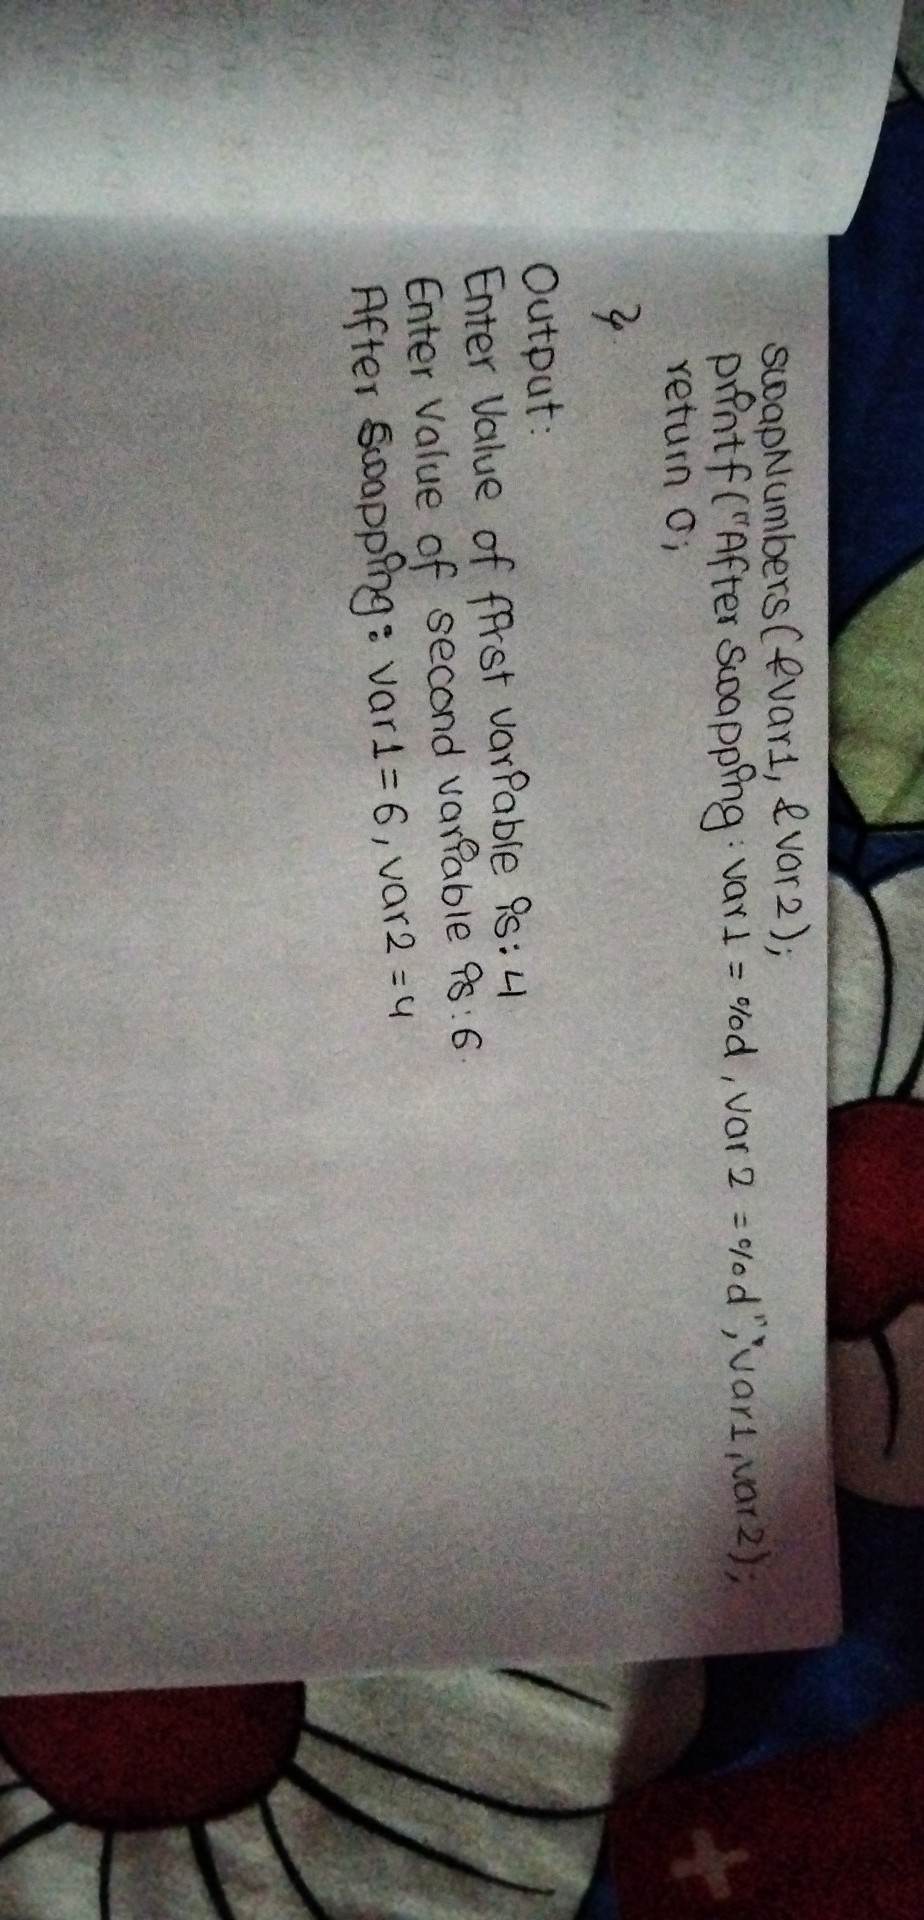 swapNumbers(&var1, &var2);
printf("After Swapping: var1 = %d, var2 = %d", var1, var2);
return 0;
}
Output:
Enter Value of first variable is: 4
Enter value of second variable is: 6
After Swapping: var1 = 6, var2 = 4